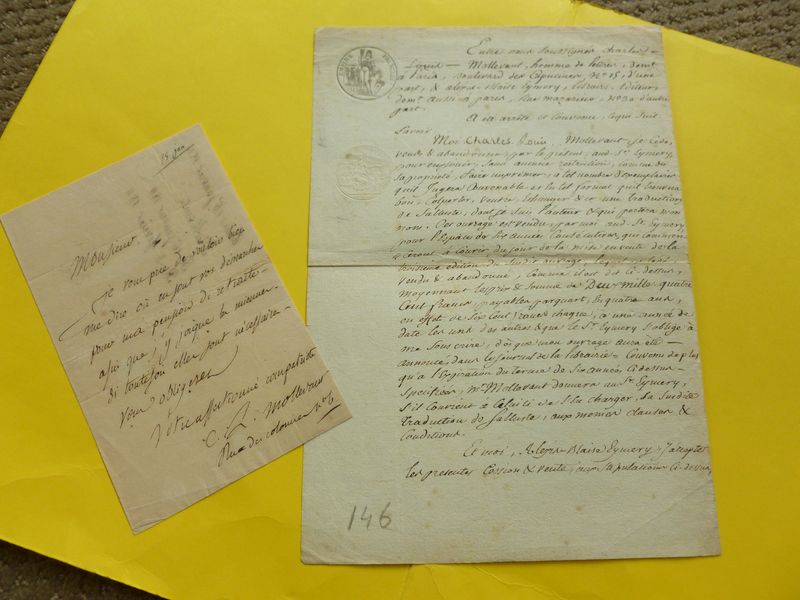 15 Jan
Monsieur
Je vous prie de vouloir bien
me dire où en sont vos démarches
pour ma pension de retraite
afin que j'y joigne les miennes
si toutefois elles sont nécessaires
Vous obligerez
Votre affectionné compatriote
C. L. Mollevaut
Rue des colonnes n° 6
Entre nous soussignés Charles-
Louis - Mollevaut, homme de lettres, demt
à Paris, boulevard des Capucines, N° 15, d'une
part, & alexis Blaise Eymery, libraire, Editeur
demt aussi à paris, Rue mazarine, N° 30 d'autre
part.
A été arrêté et convenu, ce qui suit.
Savoir
Moi Charles Louis Mollevaut, je Cède,
vends & abandonne, par le présent, au Sr. Eymery,
pour en jouir, sans aucune restriction, comme de
sa propriété, faire imprimer, à tel nombre d'exemplaires
qu'il Jugera Convenable et tel format qu'il trouvera
bon, Colporter, vendre, échanger & ce une traduction
de Salluste, dont je suis l'auteur & qui portera mon
nom. Cet ouvrage est vendu, par moi au Sr. Eymery
pour l'Espace de Six années Consécutives, qui commen-
ceront à Courir du jour de la mise en vente de la
troisième édition du dit ouvrage, lequel est
vendu & abandonné, Comme il est dit Ci-dessus,
moyennant le prix & somme de Deux mille quatre
Cent francs payables par quart, En quatre ans,
en effet de Six Cent francs chaque, à une année de
date les uns des autres & que le Sr. Eymery s'oblige à
me Souscrire, dès que mon ouvrage aura été
annoncé, dans le journal de la librairie - Convenu de plus
qu'à l'Expiration du terme de Six années Ci-dessus
Spécifiées, Mr Mollevaut donnera au Sr. Eymery,
S'il Convient à Celui-ci de s'en charger, sa susdite
traduction de Salluste, aux mêmes clauses &
Conditions.
Et moi, Alexis Blaise Eymery, j'accepte
les présentes Cession & vente, aux Stipulations Ci-dessus,
146